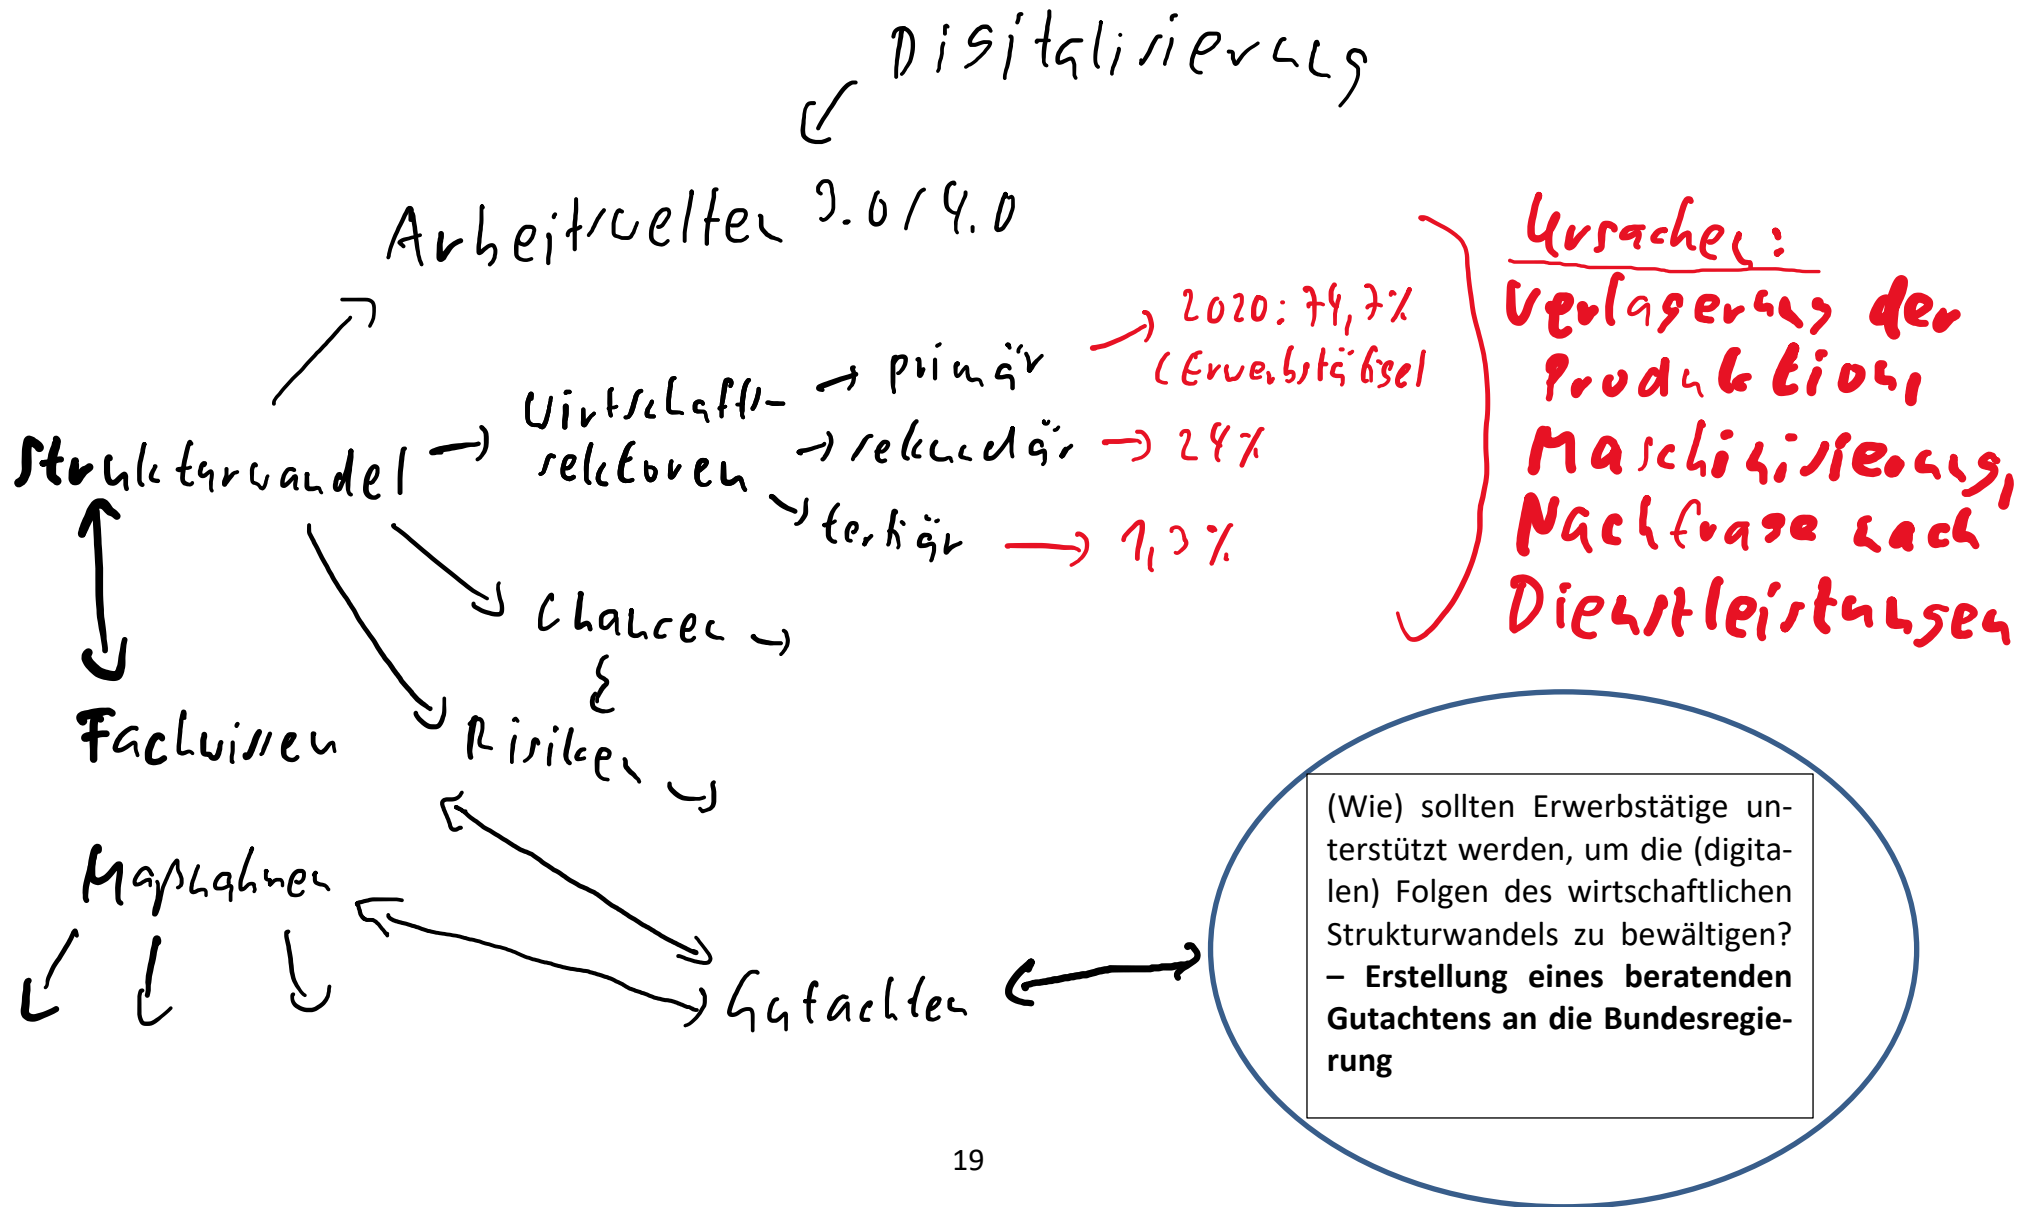 Digitalisierung
Arbeitswelten 3.0/4.0
Strukturwandel
Wirtschafts-
sektoren
primär
2020: 74,7%
(Erwerbstätige)
sekundär
24%
tertiär
1,3%
Ursachen:
Verlagerung der
Produktion,
Maschinisierung,
Nachfrage nach
Dienstleistungen
Chancen
&
Risiken
Fachwissen
Maßnahmen
Gutachten
(Wie) sollten Erwerbstätige un-
terstützt werden, um die (digita-
len) Folgen des wirtschaftlichen
Strukturwandels zu bewältigen?
– Erstellung eines beratenden
Gutachtens an die Bundesregie-
rung
19